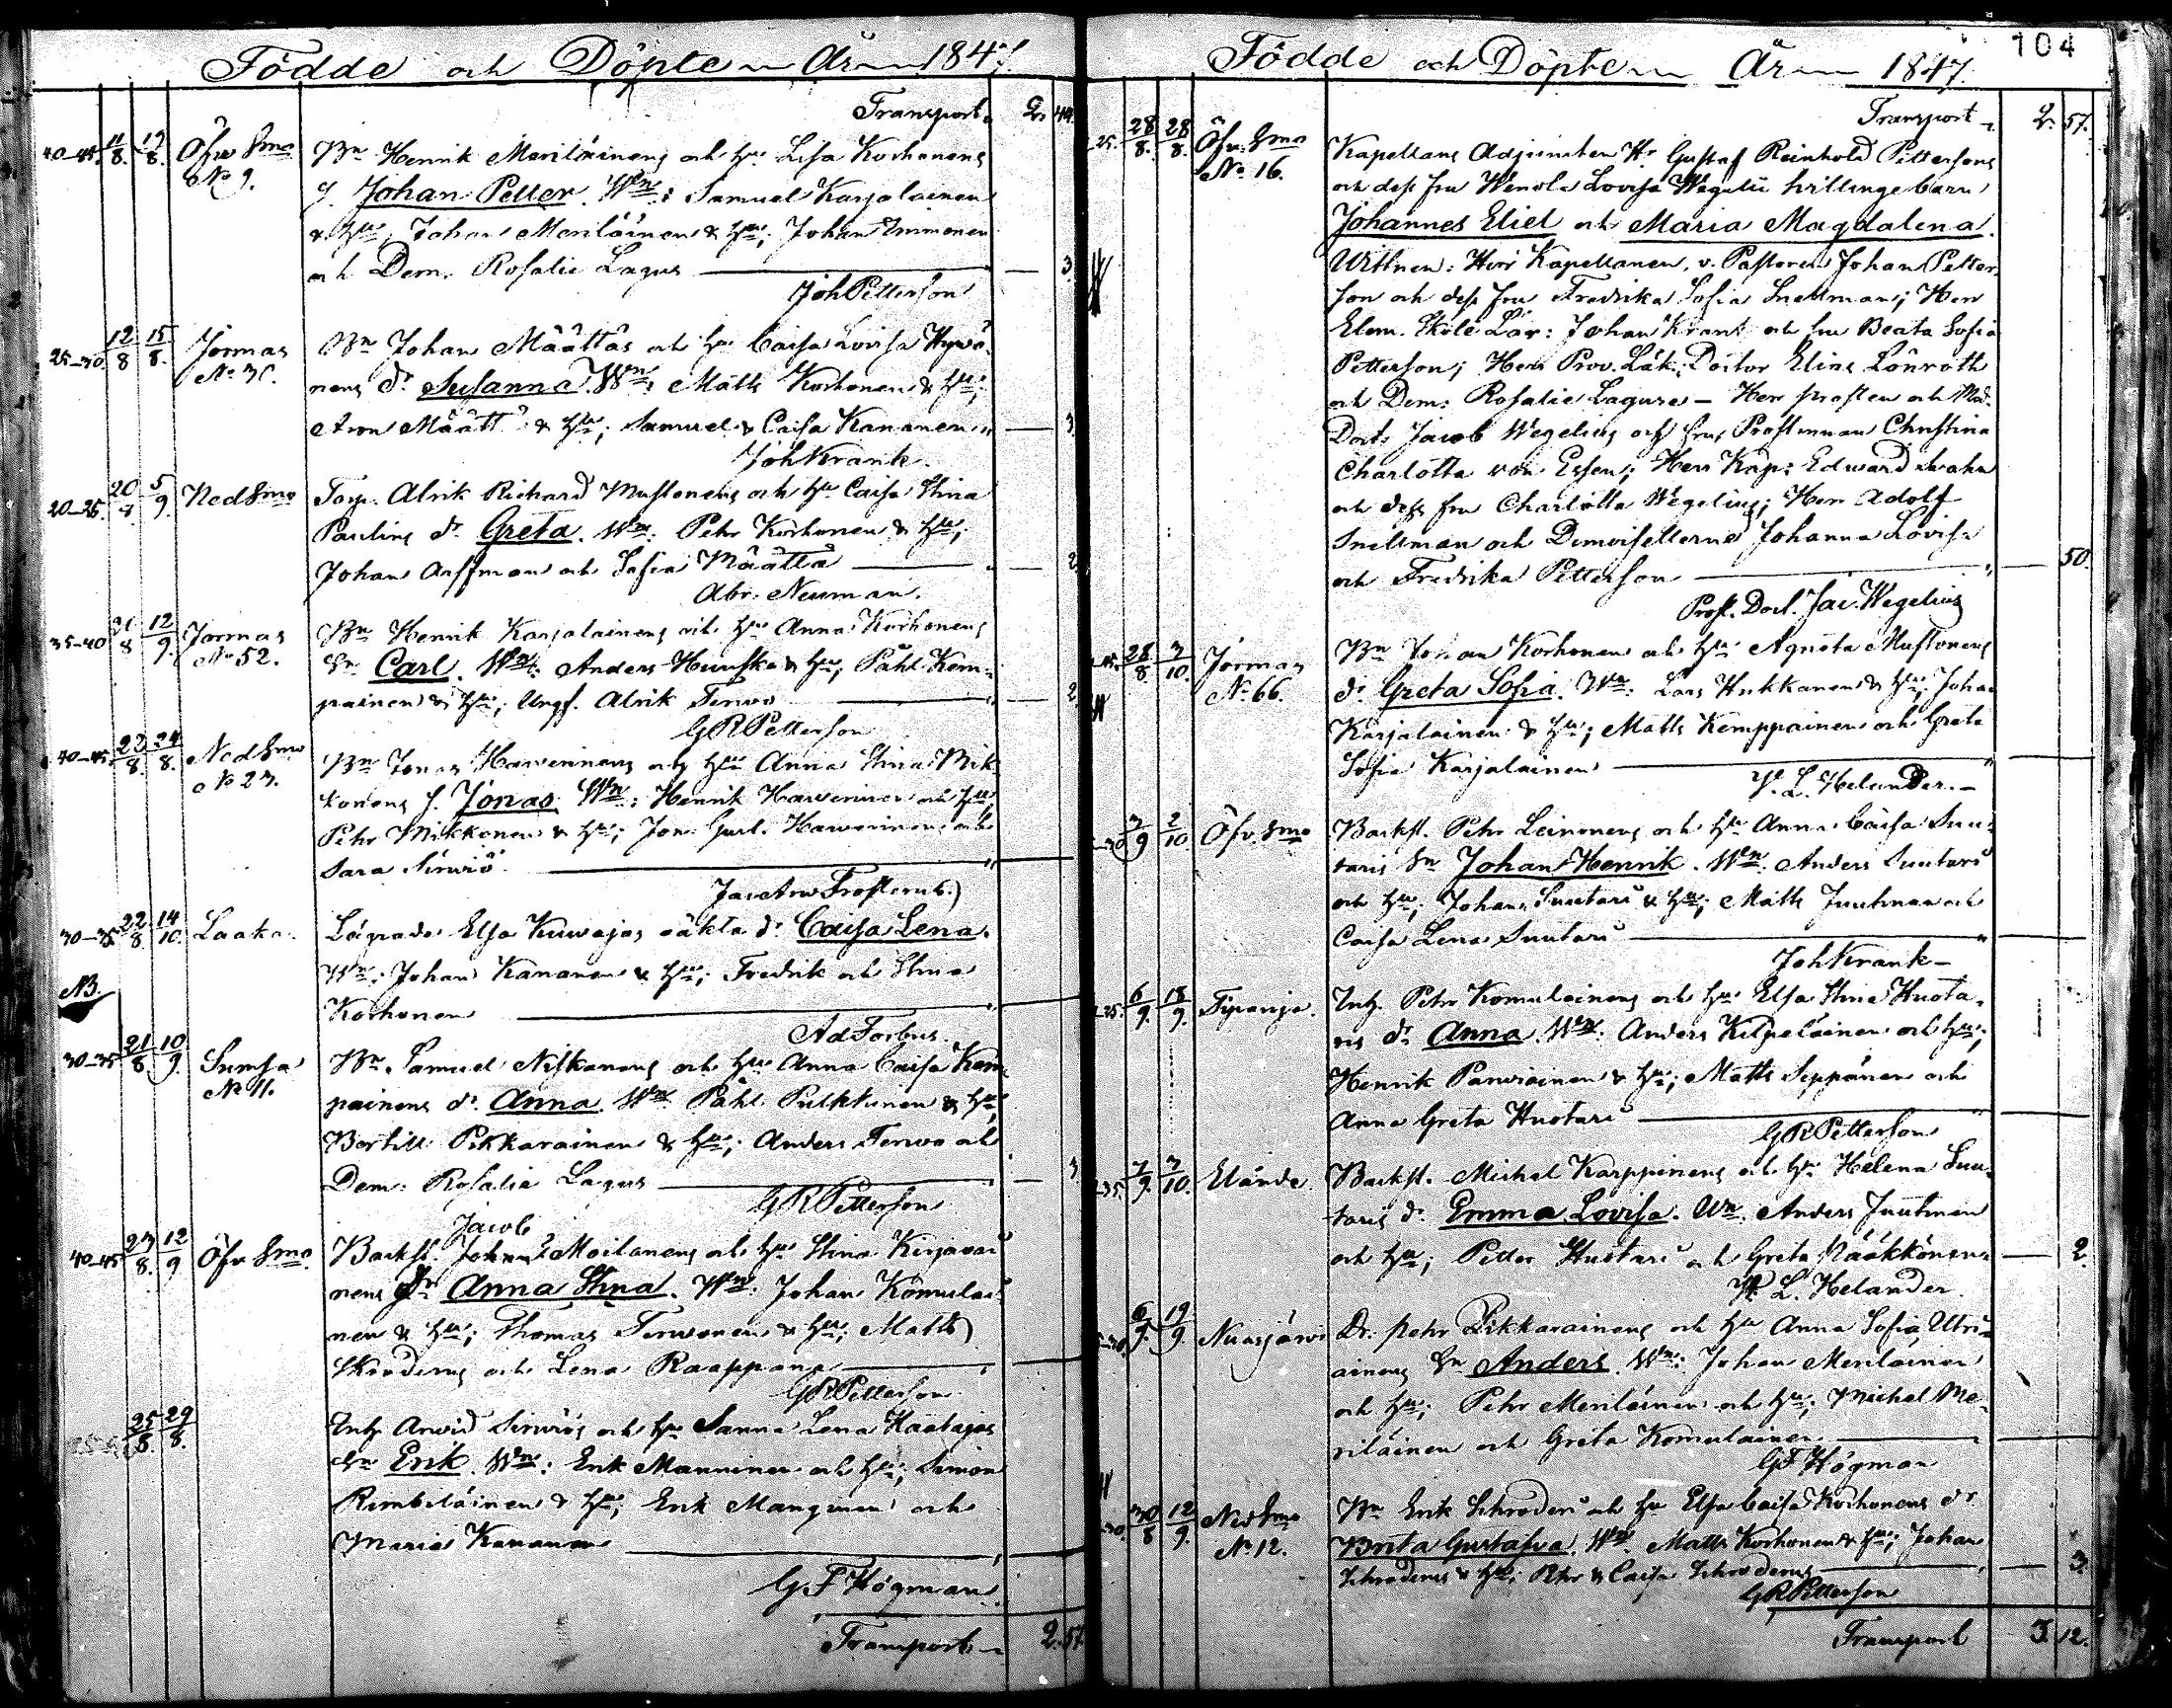 Födde och Döpte År 1847
Transport 2. 44.
40-45. 11/8. 15/8. Öfv. Smo Bn Henrik Meriläinens och hu Lisa Korhonens
No 9. s. Johan Petter. Wn: Samuel Karjalainen
& hu; Johan Meriläinen & hu; Johan Immonen
och Dem. Rosalie Lagus 3.
Joh Petterson
25-30. 12/8 15/8. Jormas Bn Johan Määttäs och hu Caisa Lovisa Hyvö-
No 30. nens dr Susanna. Wn: Matts Korhonen & hu;
Aron Määttä & hu; Samuel & Caisa Kananen 3.
Joh Krank.
20-25. 5/9. Ned Smo Torp. Alrik Richard Mustonens och hu Caisa Stina
Paulins dr Greta. Wn: Pehr Korhonen & hu;
Johan Aaffman och Sofia Määttä 2.
Abr. Neuman.
35-40 21/8 12/9. Jormas Bn Henrik Karjalainens och hu Anna Korhonens
No 52. Sn Carl. Wn: Anders Hurska & hu; Påhl Kem-
painen & hu; Ungk. Alrik Tervo 2
G R Petterson
40-45. 23/8. 24/8. Ned Smo Bn Jonas Harvinens och hu Anna Stina Mik-
No 23. konens s. Jonas. Wn: Henrik Harvinen och hu;
Pehr Mikkonen & hu; Jon. Gust. Harvinen och
Sara Sirviö
Jac Anw Frosterus.)
30-35. 22/8. 14/10. Laaka. Lägrade Elsa Kuvajas oäkta dr Caisa Lena.
Wn: Johan Kananen & hu; Fredrik och Stina
NB. Korhonen
Ad Forbus.
30-35 21/8. 10/9. Sumsa Bn Samuel Niskanens och hu Anna Caisa Kem-
No 11. painens dr Anna. Wn Påhl Pulkkinen & hu;
Bertill Pikkarainen & hu; Anders Tervo och
Dem. Rosalia Lagus 3
G R Petterson
Jacob
40-45 23/8. 12/9 Öfv Smo. Backst. Johan Moilanens och hu Stina Kirjavai-
nens dr Anna Stina. Wn: Johan Komulai-
nen & hu; Thomas Tervonen & hu; Matts
Skroderus och Lena Raappana
G R Petterson
25/8. 29/8. Inh. Arvid Sirviös och hu Sanna Lena Haatajas
Sn Erik. Wn: Erik Manninen och hu; Simon
Rimbiläinen & hu; Erik Manninen och
Maria Kananen
G F Högman
Transport 2. 57.

104
Födde och Döpte År 1847.
Transport 2. 57.
25. 28/8. 28/8. Öfv. Smo Kapellans Adjuncten Hr Gustaf Reinhold Pettersons
No 16. och dess fru Wendla Lovisa Wegelii tvillinge barn
Johannes Eliel och Maria Magdalena.
Wittnen: Herr Kapellanen, v. Pastoren Johan Petter-
son och dess fru Fredrika Sofia Snellman; Herr
Elem. Skole Lär: Johan Krank och fru Beata Sofia
Petterson; Herr Prov. Läk: Doctor Elias Lönnroth
och Dem: Rosalie Laguse – Herr Prosten och Med.
Doct. Jacob Wegelius och fru, Prostinnan Christina
Charlotta von Essen; Herr Kap: Edward Svahn
och dess fru Charlotta Wegelius; Herr Adolf
Snellman och Demoisellerne Johanna Lovisa
och Fredrika Petterson 50.
Prost. Doct. Jac. Wegelius
28/8 3/10. Jormas Bn Johan Korhonens och hu Agneta Mustonens
No 66. dr Greta Sofia. Wn: Lars Hukkanen & hu; Johan
Karjalainen & hu; Matts Kemppainen och Greta
Sofia Karjalainen
P. L. Helander.–
3/9 2/10 Öfv. Smo Backst. Pehr Leinonens och hu Anna Caisa Suu-
taris Sn Johan Henrik. Wn: Anders Suutari
och hu; Johan Suutari & hu; Matts Juutinen och
Caisa Lena Suutari
Joh Krank –
25. 6/9. 18/9. Tipasoja. Inh. Pehr Komulainens och hu Elsa Stina Huota-
ris dr Anna. Wn: Anders Kilpeläinen och hu;
Henrik Parviainen & hu; Matts Seppänen och
Anna Greta Huotari
G R Petterson
35. 7/9. 3/10. Elände. Backst. Michel Karppinens och hu Helena Suu-
taris dr Emma Lovisa. Wn. Anders Juutinen
och hu; Petter Huotari och Greta Nääkkönen 2.
P. L. Helander.
19/9. Nuasjärvi Dr. Pehr Pikkarainens och hu Anna Sofia Utri-
ainens Sn Anders. Wn: Johan Meriläinen
och hu; Pehr Meriläinen och hu; Michel Me-
riläinen och Greta Komulainen
G F Högman
30/8 12/9. Ned Smo Bn Erik Schroderi och hu Elsa Caisa Korhonens dr
No 12. Brita Gustafva. Wn. Matts Korhonen & hu; Johan
Schroderus & hu; Pehr & Caisa Schroderus 3.
G R Petterson
Transport 3. 12.